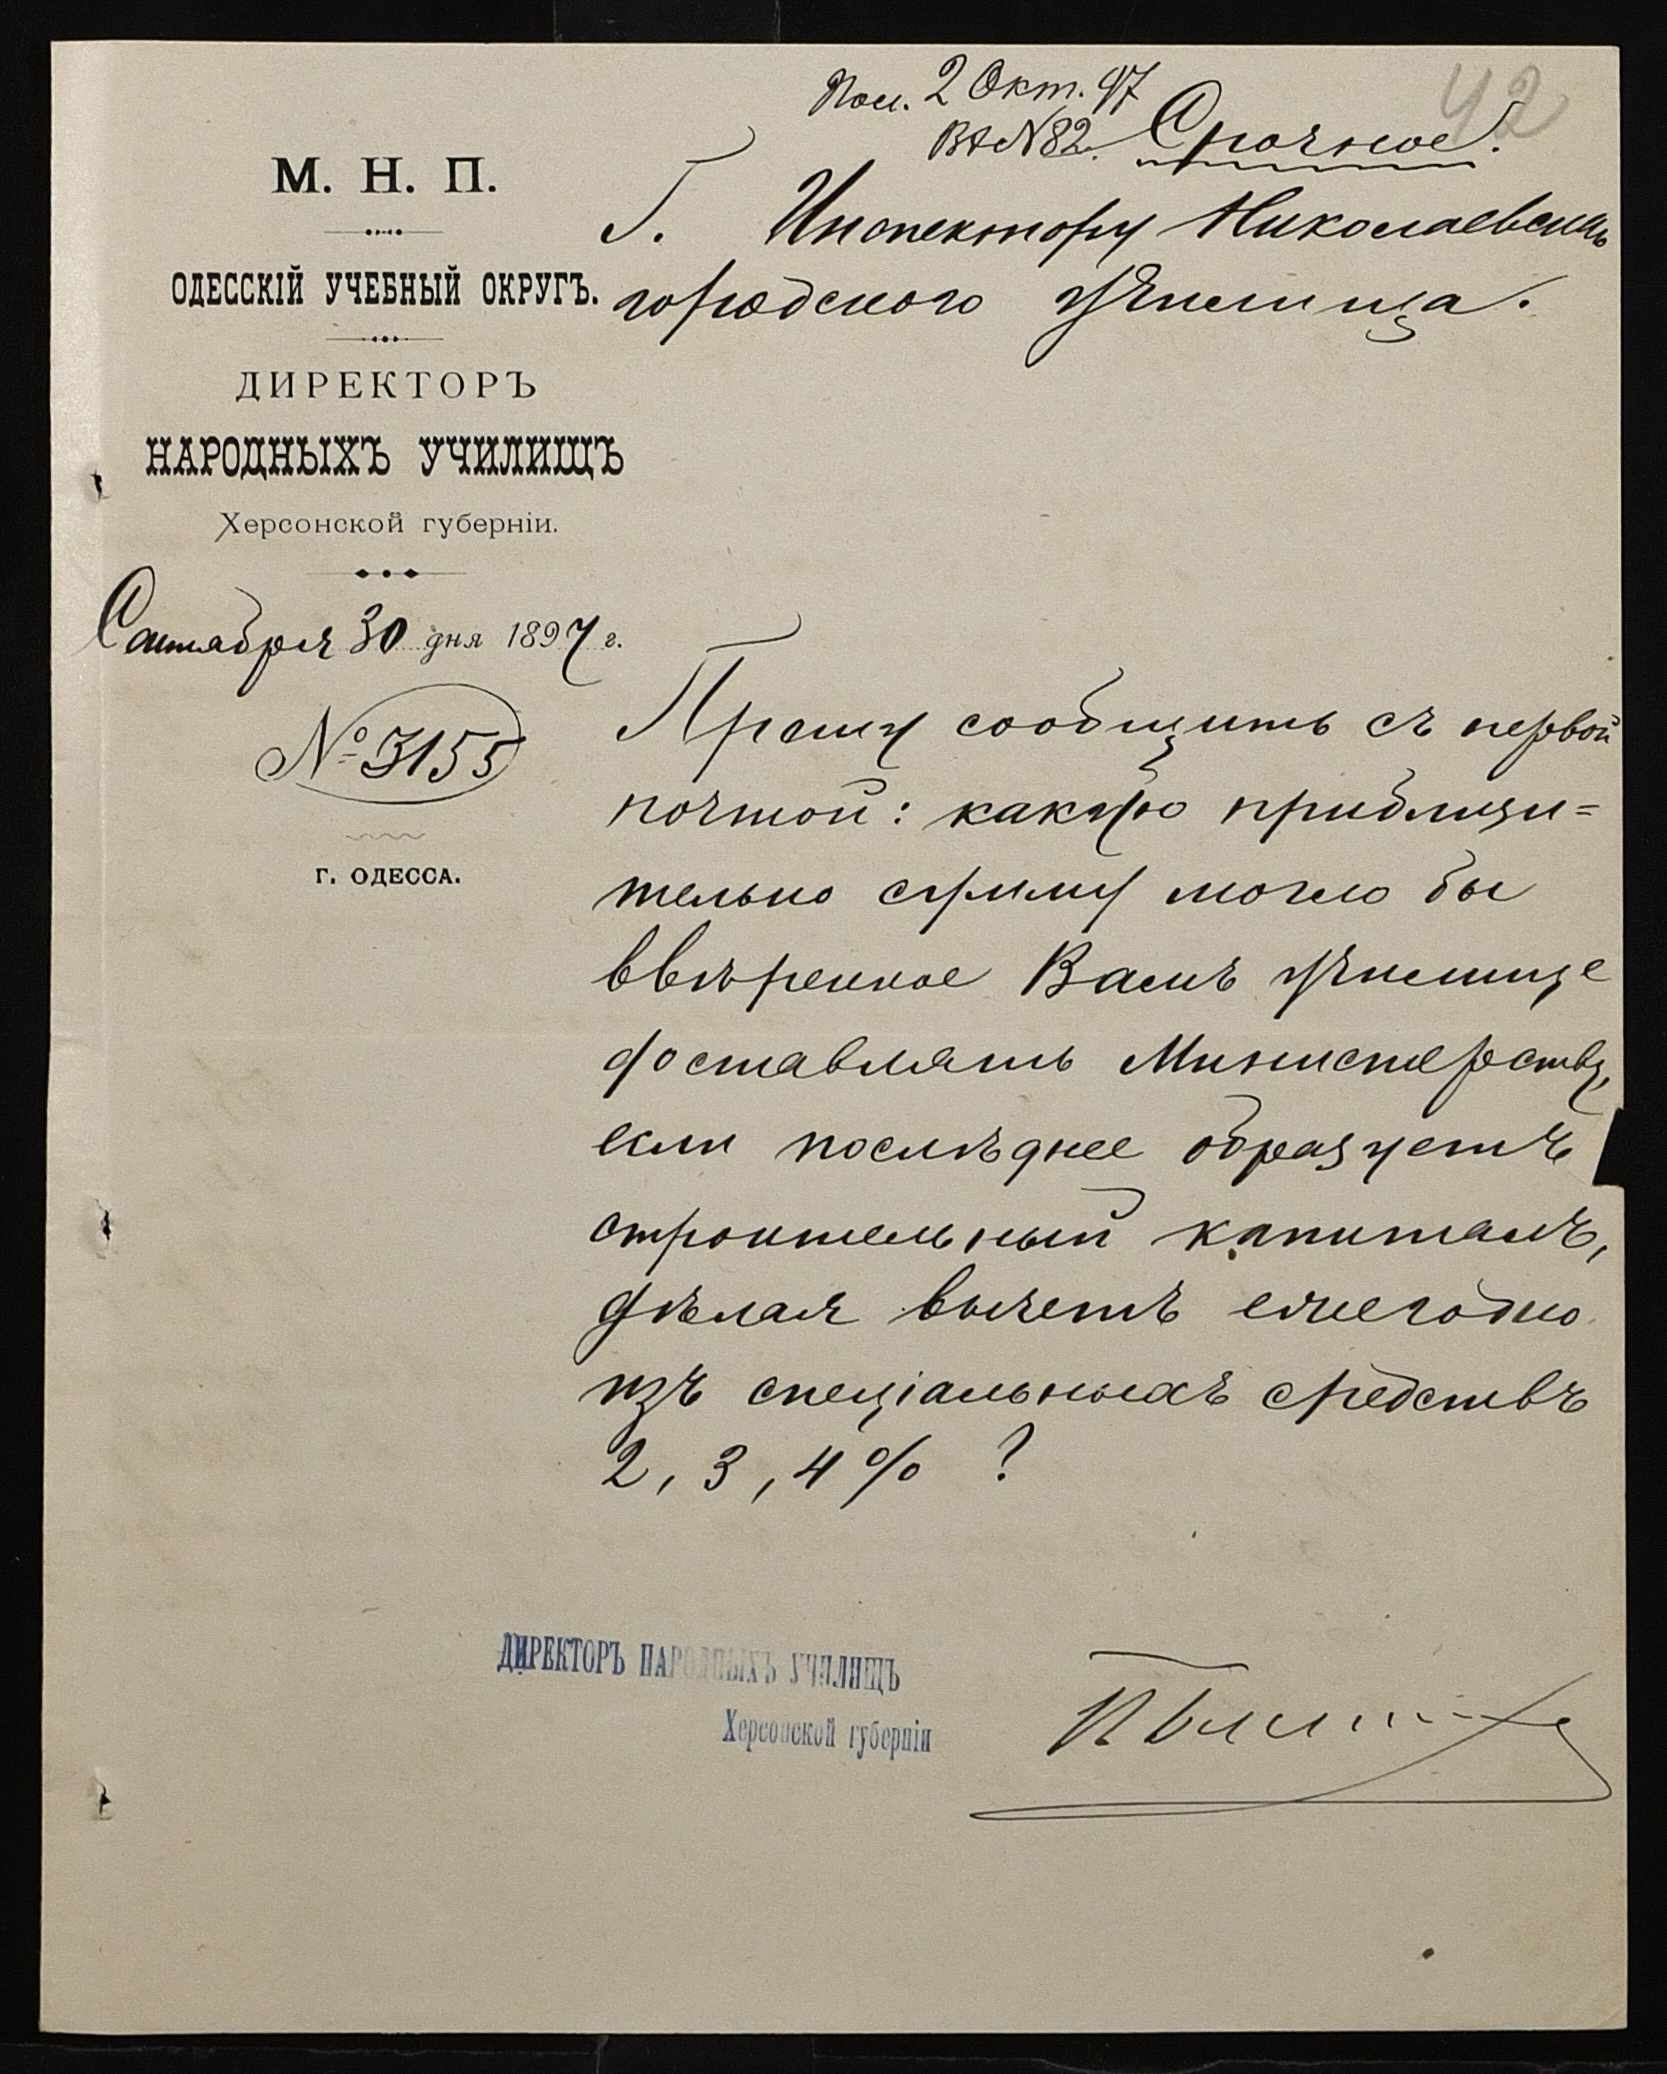 42
Пол. 2 Окт. 97
Вх № 82. Срочное.
М. Н. П.
ОДЕССКІЙ УЧЕБНЫЙ ОКРУГЪ.
ДИРЕКТОРЪ
НАРОДНЫХЪ УЧИЛИЩЪ
Херсонской губерніи.
Сентября 30 дня 1897 г.
№ 3155
Г. ОДЕССА.
Г. Инспектору Николаевскаго
городского училища.
Прошу сообщить съ первой
почтой: какую приблизи=
тельно сумму могло бы
ввѣренное Вамъ училище
доставлять Министерству,
если послѣднее образуетъ
строительный капиталъ,
дѣлая вычетъ ежегодно
изъ спеціальныхъ средствъ
2, 3, 4 % ?
ДИРЕКТОРЪ НАРОДНЫХЪ УЧИЛИЩЪ
Херсонской губерніи